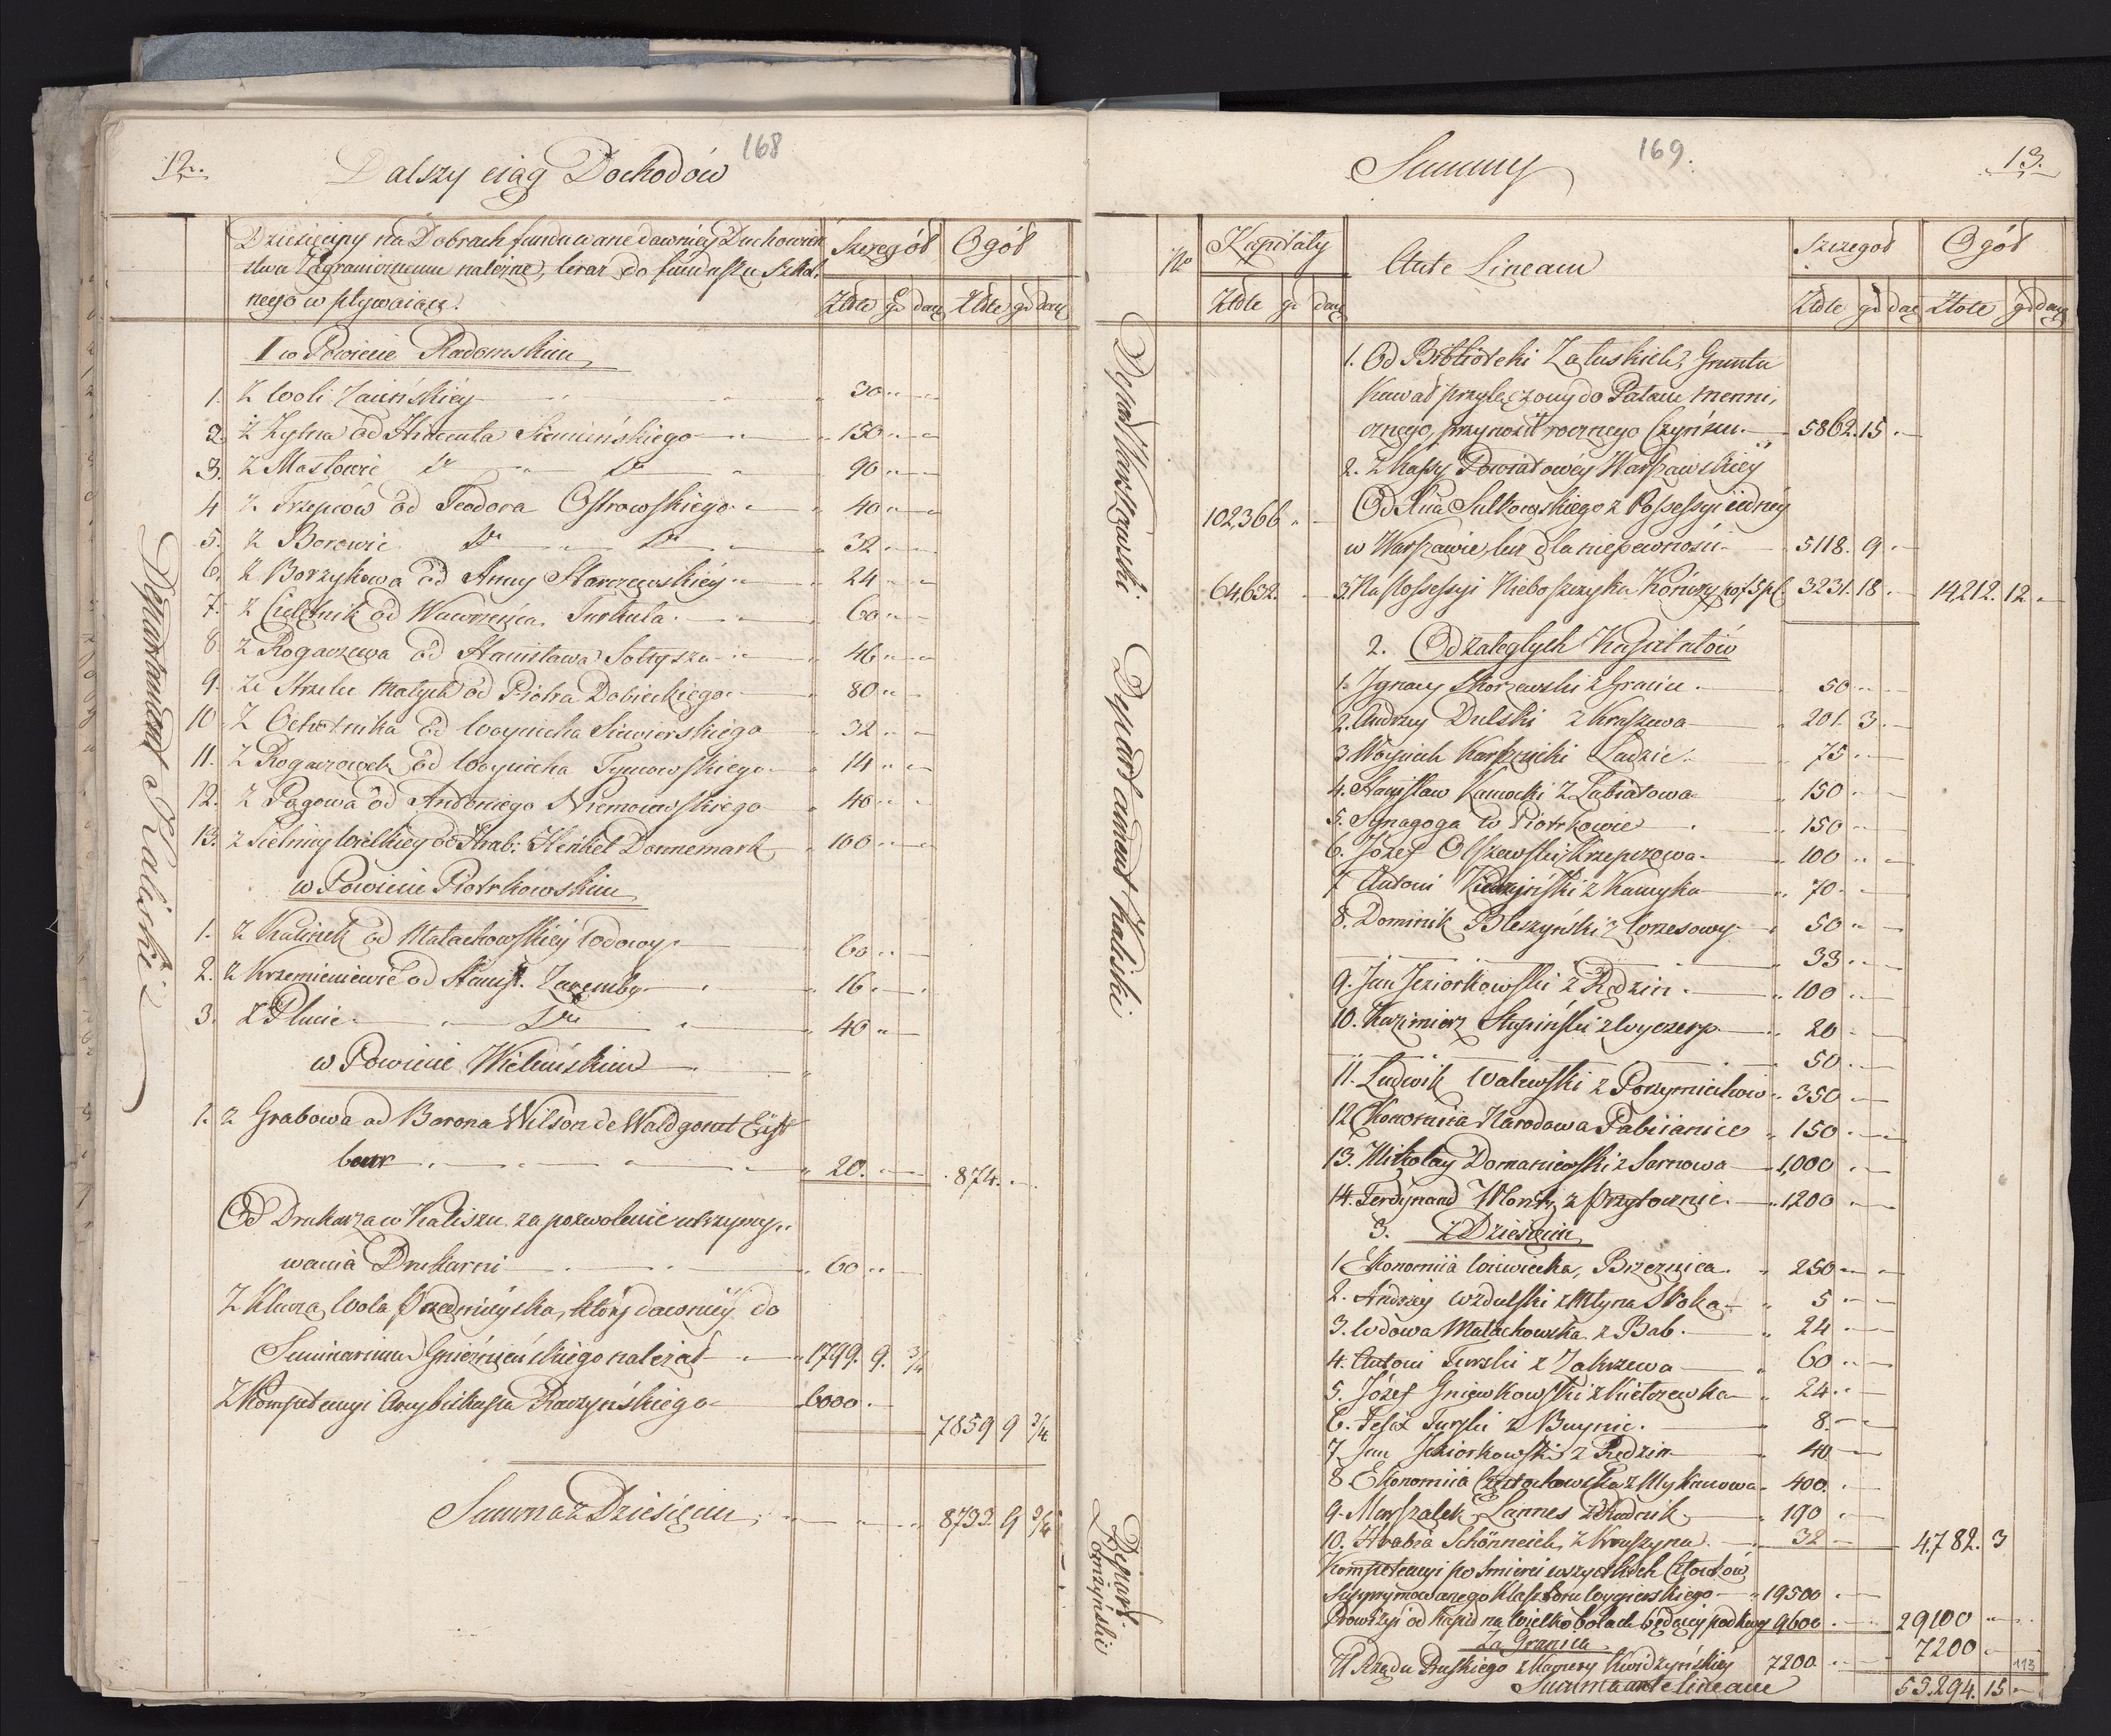 12.
168
Dalszy ciąg Dochodów
Dziesięciny na Dobrach fundowane dawniey Duchowień
stwu Zagranicznemu należne, teraz do funduszu Szkol.
nego wpływaiące.
Szczegół Ogół
Złote gr den Złote gr den
Departament Kaliski
1 w Powiecie Radomskim
1. Z Woli 30
2. z Żytna od Hincenta Siemieńskiego 150
3. z Masłowic do do 90
4 z Trzepców od Teodora Ostrowskiego 40
5. z Borowic do do 32
6. z Borzykowa od Anny Starczewskiey 24
7. z Cielętnik od Wawrzeńca 60
8 z Rogaczewa od Stanisława Sołtysza 46
9. ze Strzelec Małych od Piotra Dobieckiego 80
10 Z Ochotnika od Woyciecha Siewierskiego 32
11. Z Rogaczowek od Woyciecha Tymowskiego 14
12. z Pągowa od Antoniego Niemoiowskiego 40
13. z Sielnicy Wielkiey od Hrab: Henkel Donnemark 100
w Powiecie Piotrkowskim
1. z Kalinek od Małachowskiey Wdowy 60
2. z Krzemieniewic od Stanisł. Zaremby 16
3. z Plucic do 40
w Powiecie Wieluńskim
1. z Grabowa od Barona Wilson de
20. 874.
Od Drukarza w Kaliszu za pozwolenie utrzymy
wania Drukarni 60
Z Klucza Wola który dawniey do
Seminarium Gnieźnieńskiego należał 1799. 9. 3/4
Z Kompetencyi Arcybiskupa Raczyńskiego 6000
7859 9 3/4
Summa z Dziesięcin 8733 9 3/4
Summy
169.
13.
No Kapitały Ante Lineam Szczegoł Ogół
Złote gr den Złote gr den Złote gr den
Depart Warszawski
1. Od Biblioteki Załuskich, Gruntu
Kawał przyłączony do Pałacu menni,
cznego przynosił rocznego Czynszu. 5862. 15
2. z Kassy Powiatowey Warszawskiey
102,366 Od Xcia Sułkowskiego z Possessyi iedney
w Warszawie, lecz dla niepewności 5118. 9
64,632. 3. Na Possessyi Nieboszczyka 3231. 18 14,212. 12
Departament Kaliski
2. Od zaległych Kapitałów
1. Ignacy Skorzewski z 50
2. Andrzey Dulski z Kraszewa 201. 3
3. Woyciech Karsznicki Ładzic 75
4. Stanisław Kamocki z Łabiatowa 150
5. Synagoga w Piotrkowie 150
6. Józef Olszewski z Krzepczowa 100
7 Antoni z Kamyka 70
8. Dominik Błeszyński z 50
33
9. Jan Jeziorkowski z Rędzin 100
10. Kazimierz Stępiński z Wyczerp 20
50
11. Ludwik Walewski z 350
12 Ekonomia Narodowa Pabiianice 150
13. Mikołay Domaniewski z Sarnowa 1,000
14. Ferdynand z Przytocznic 1200
3. z Dziesięcin
1 Ekonomiia Brzeznica 250
2. Andrzey Wzdulski z Młyna 5
3. Wdowa Małachowska z Bab. 24
4. Antoni Turski z Zakrzewa 60
5. Józef Gniewkowski z Kiełczewka 24
6. Felix Turski z Buynic 8
7 Jan Jeziorkowski z Rędzin 40
8 Ekonomiia Częstochowska z Mykanowa 400
9. Marszałek Lannes z Rudnik 190
10. Hrabia Schönneich z Kruszyna 32 4,782. 3
Depart. Łomżyński
Kompetencyi po śmierci wszystkich Członków
supprymowanego Klasztoru Wygierskiego 19500
Prowizyi od Kapit: na będącey pod 9600 29100
Za Granicą
U Rządu Pruskiego z Kamery Kwidzyńskiey 7200 7200
113
Summa ante lineam 53.294. 15